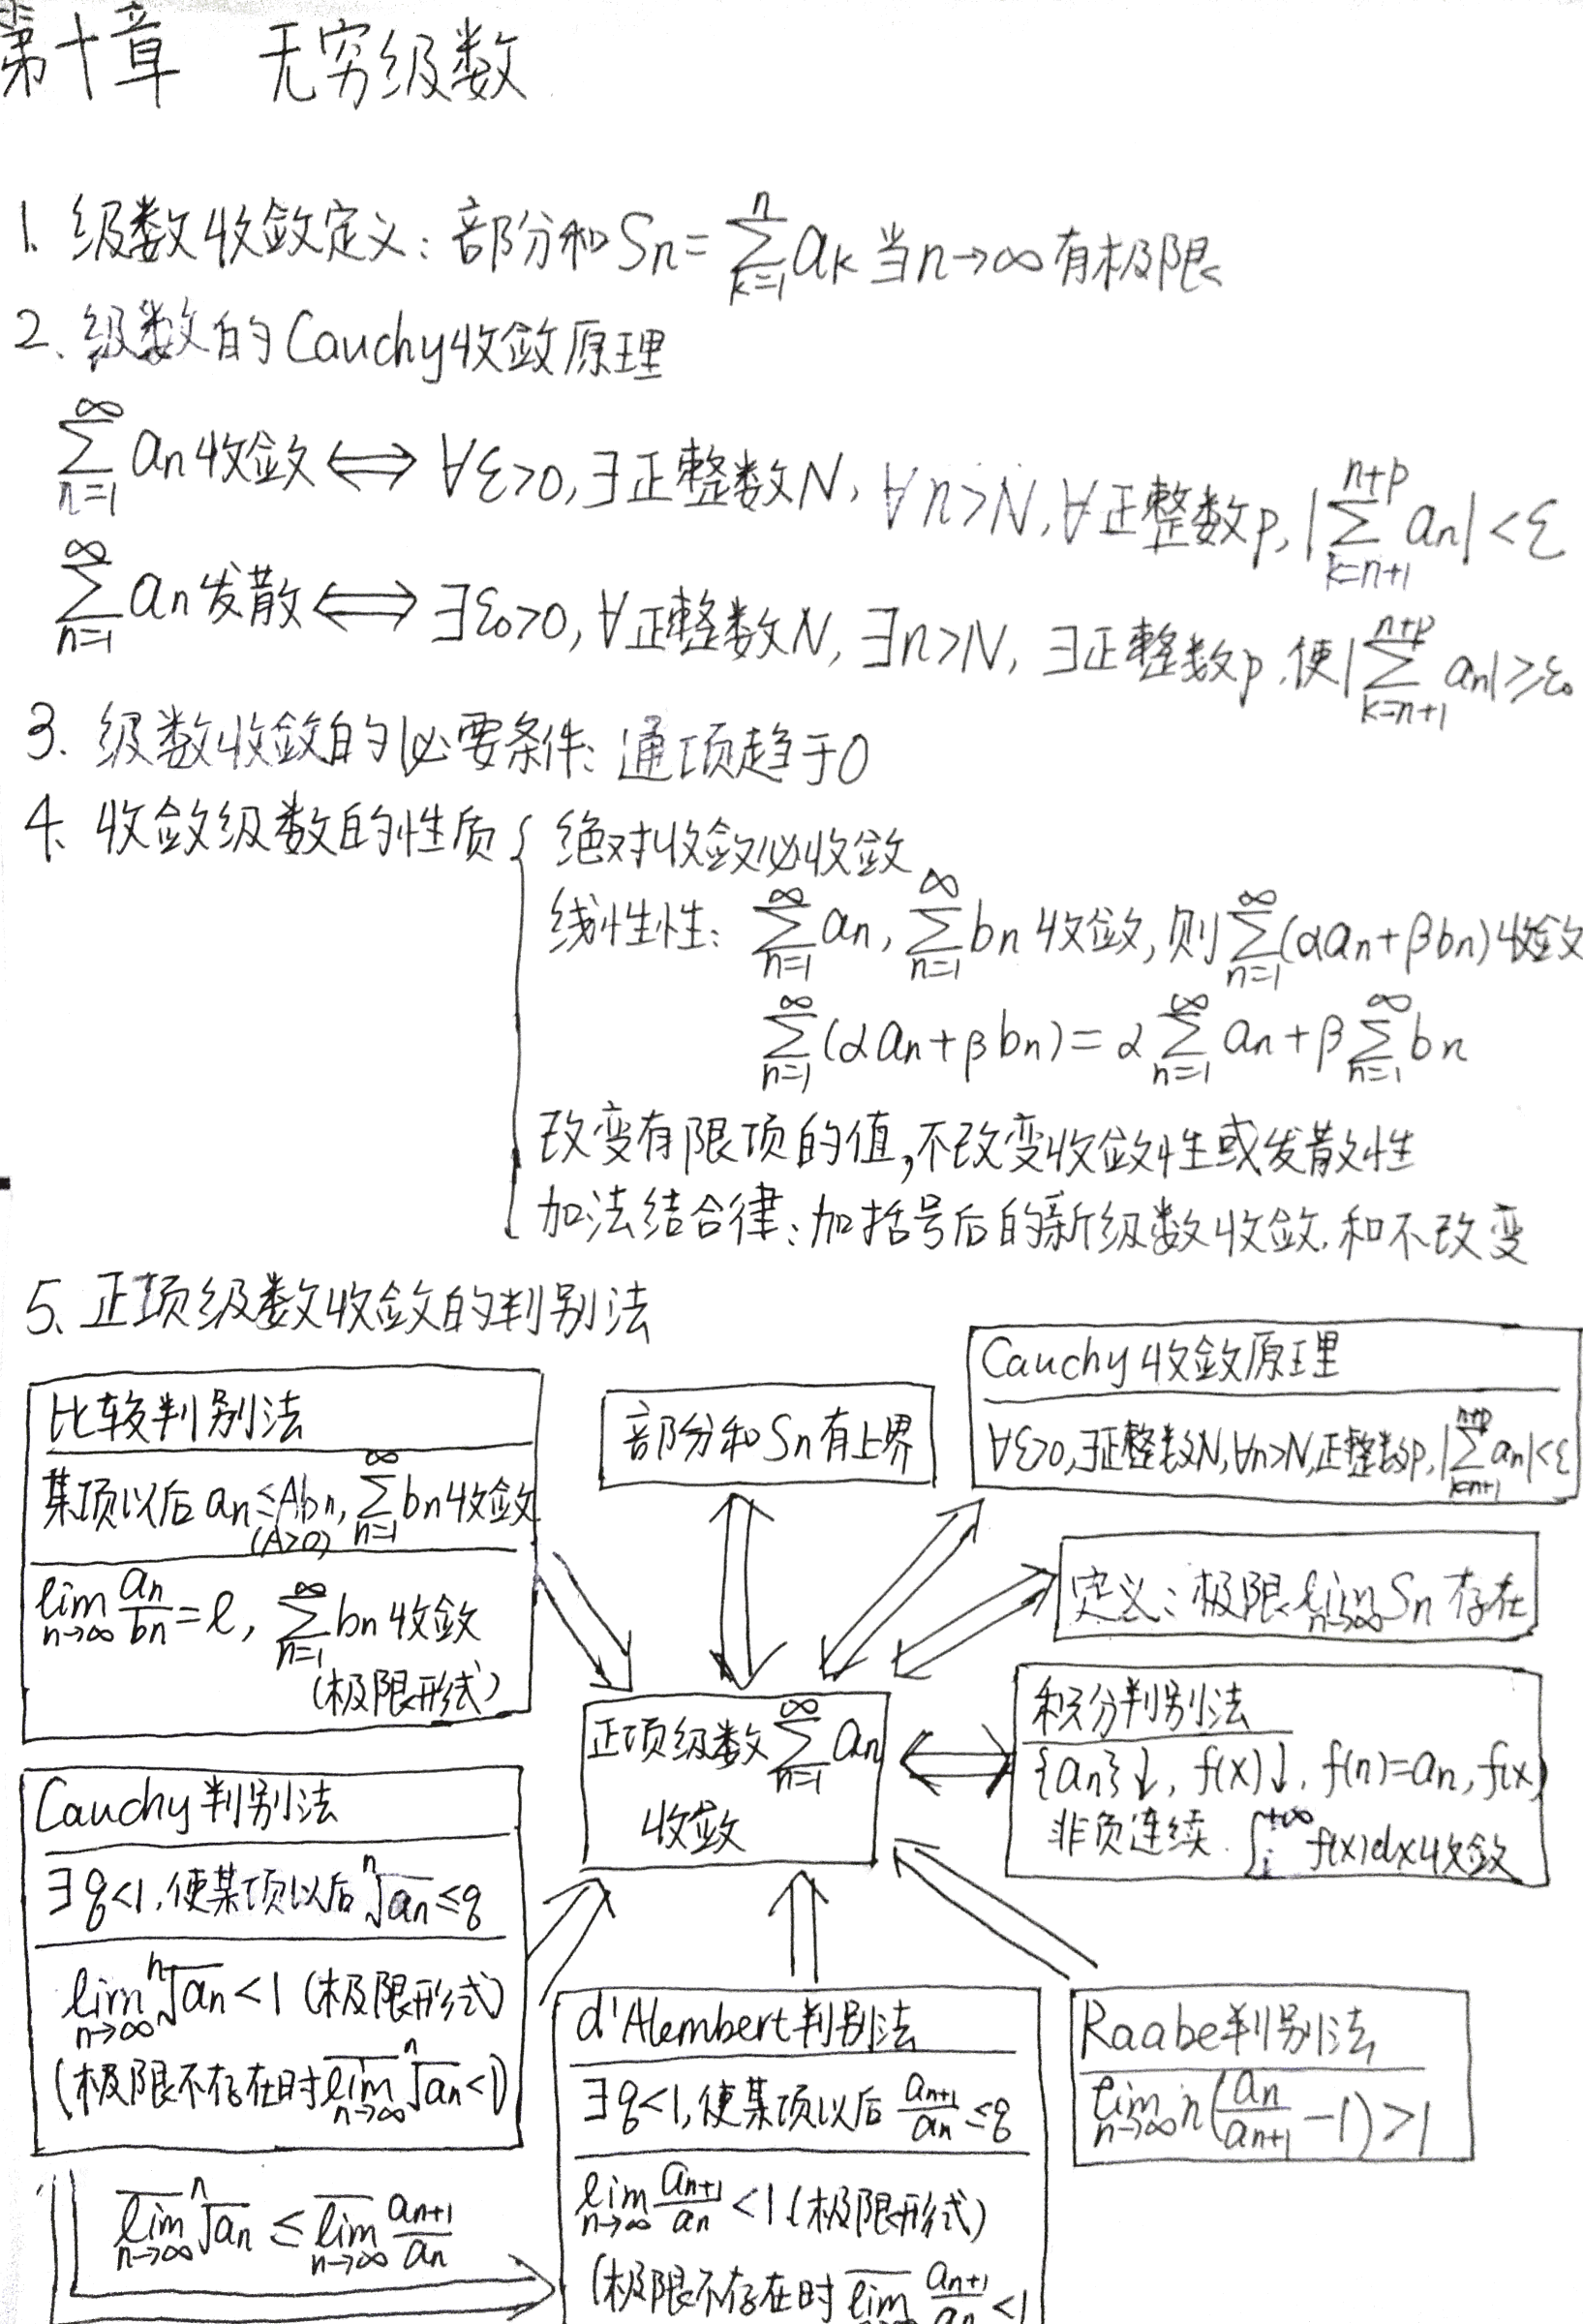 第十章 无穷级数
1. 级数收敛定义：部分和 Sn = ∑_{k=1}^{n} ak 当n→∞有极限
2、级数的Cauchy收敛原理
∑_{n=1}^{∞} an 收敛 ⟺ ∀ε>0, ∃正整数N, ∀n>N, ∀正整数p, |∑_{k=n+1}^{n+p} an| < ε
∑_{n=1}^{∞} an 发散 ⟺ ∃ε0>0, ∀正整数N, ∃n>N, ∃正整数p, 使|∑_{k=n+1}^{n+p} an| ≥ ε0
3、级数收敛的必要条件：通项趋于0
4、收敛级数的性质
绝对收敛必收敛
线性性：∑_{n=1}^{∞} an, ∑_{n=1}^{∞} bn 收敛, 则∑_{n=1}^{∞}(αan+βbn)收敛
∑_{n=1}^{∞}(αan+βbn) = α∑_{n=1}^{∞} an + β∑_{n=1}^{∞} bn
改变有限项的值,不改变收敛性或发散性
加法结合律：加括号后的新级数收敛,和不改变
5、正项级数收敛的判别法
比较判别法
某项以后 an≤Abn, ∑_{n=1}^{∞} bn收敛
(A>0)
lim_{n→∞} an/bn = l, ∑_{n=1}^{∞} bn 收敛
(极限形式)
部分和Sn有上界
Cauchy收敛原理
∀ε>0,∃正整数N,∀n>N,正整数p,|∑_{k=n+1}^{n+p} an|<ε
定义：极限 lim_{n→∞} Sn 存在
正项级数 ∑_{n=1}^{∞} an
收敛
积分判别法
{an}↓, f(x)↓, f(n)=an, f(x)
非负连续. ∫_{1}^{+∞} f(x)dx收敛
Cauchy判别法
∃q<1,使某项以后 ⁿ√an ≤ q
lim_{n→∞} ⁿ√an < 1 (极限形式)
(极限不存在时 l̅i̅m̅_{n→∞} ⁿ√an < 1)
l̅i̅m̅_{n→∞} ⁿ√an ≤ l̅i̅m̅_{n→∞} an+1/an
d'Alembert判别法
∃q<1,使某项以后 an+1/an ≤ q
lim_{n→∞} an+1/an < 1 (极限形式)
(极限不存在时 l̅i̅m̅ an+1/an < 1
Raabe判别法
lim_{n→∞} n(an/an+1 − 1) > 1